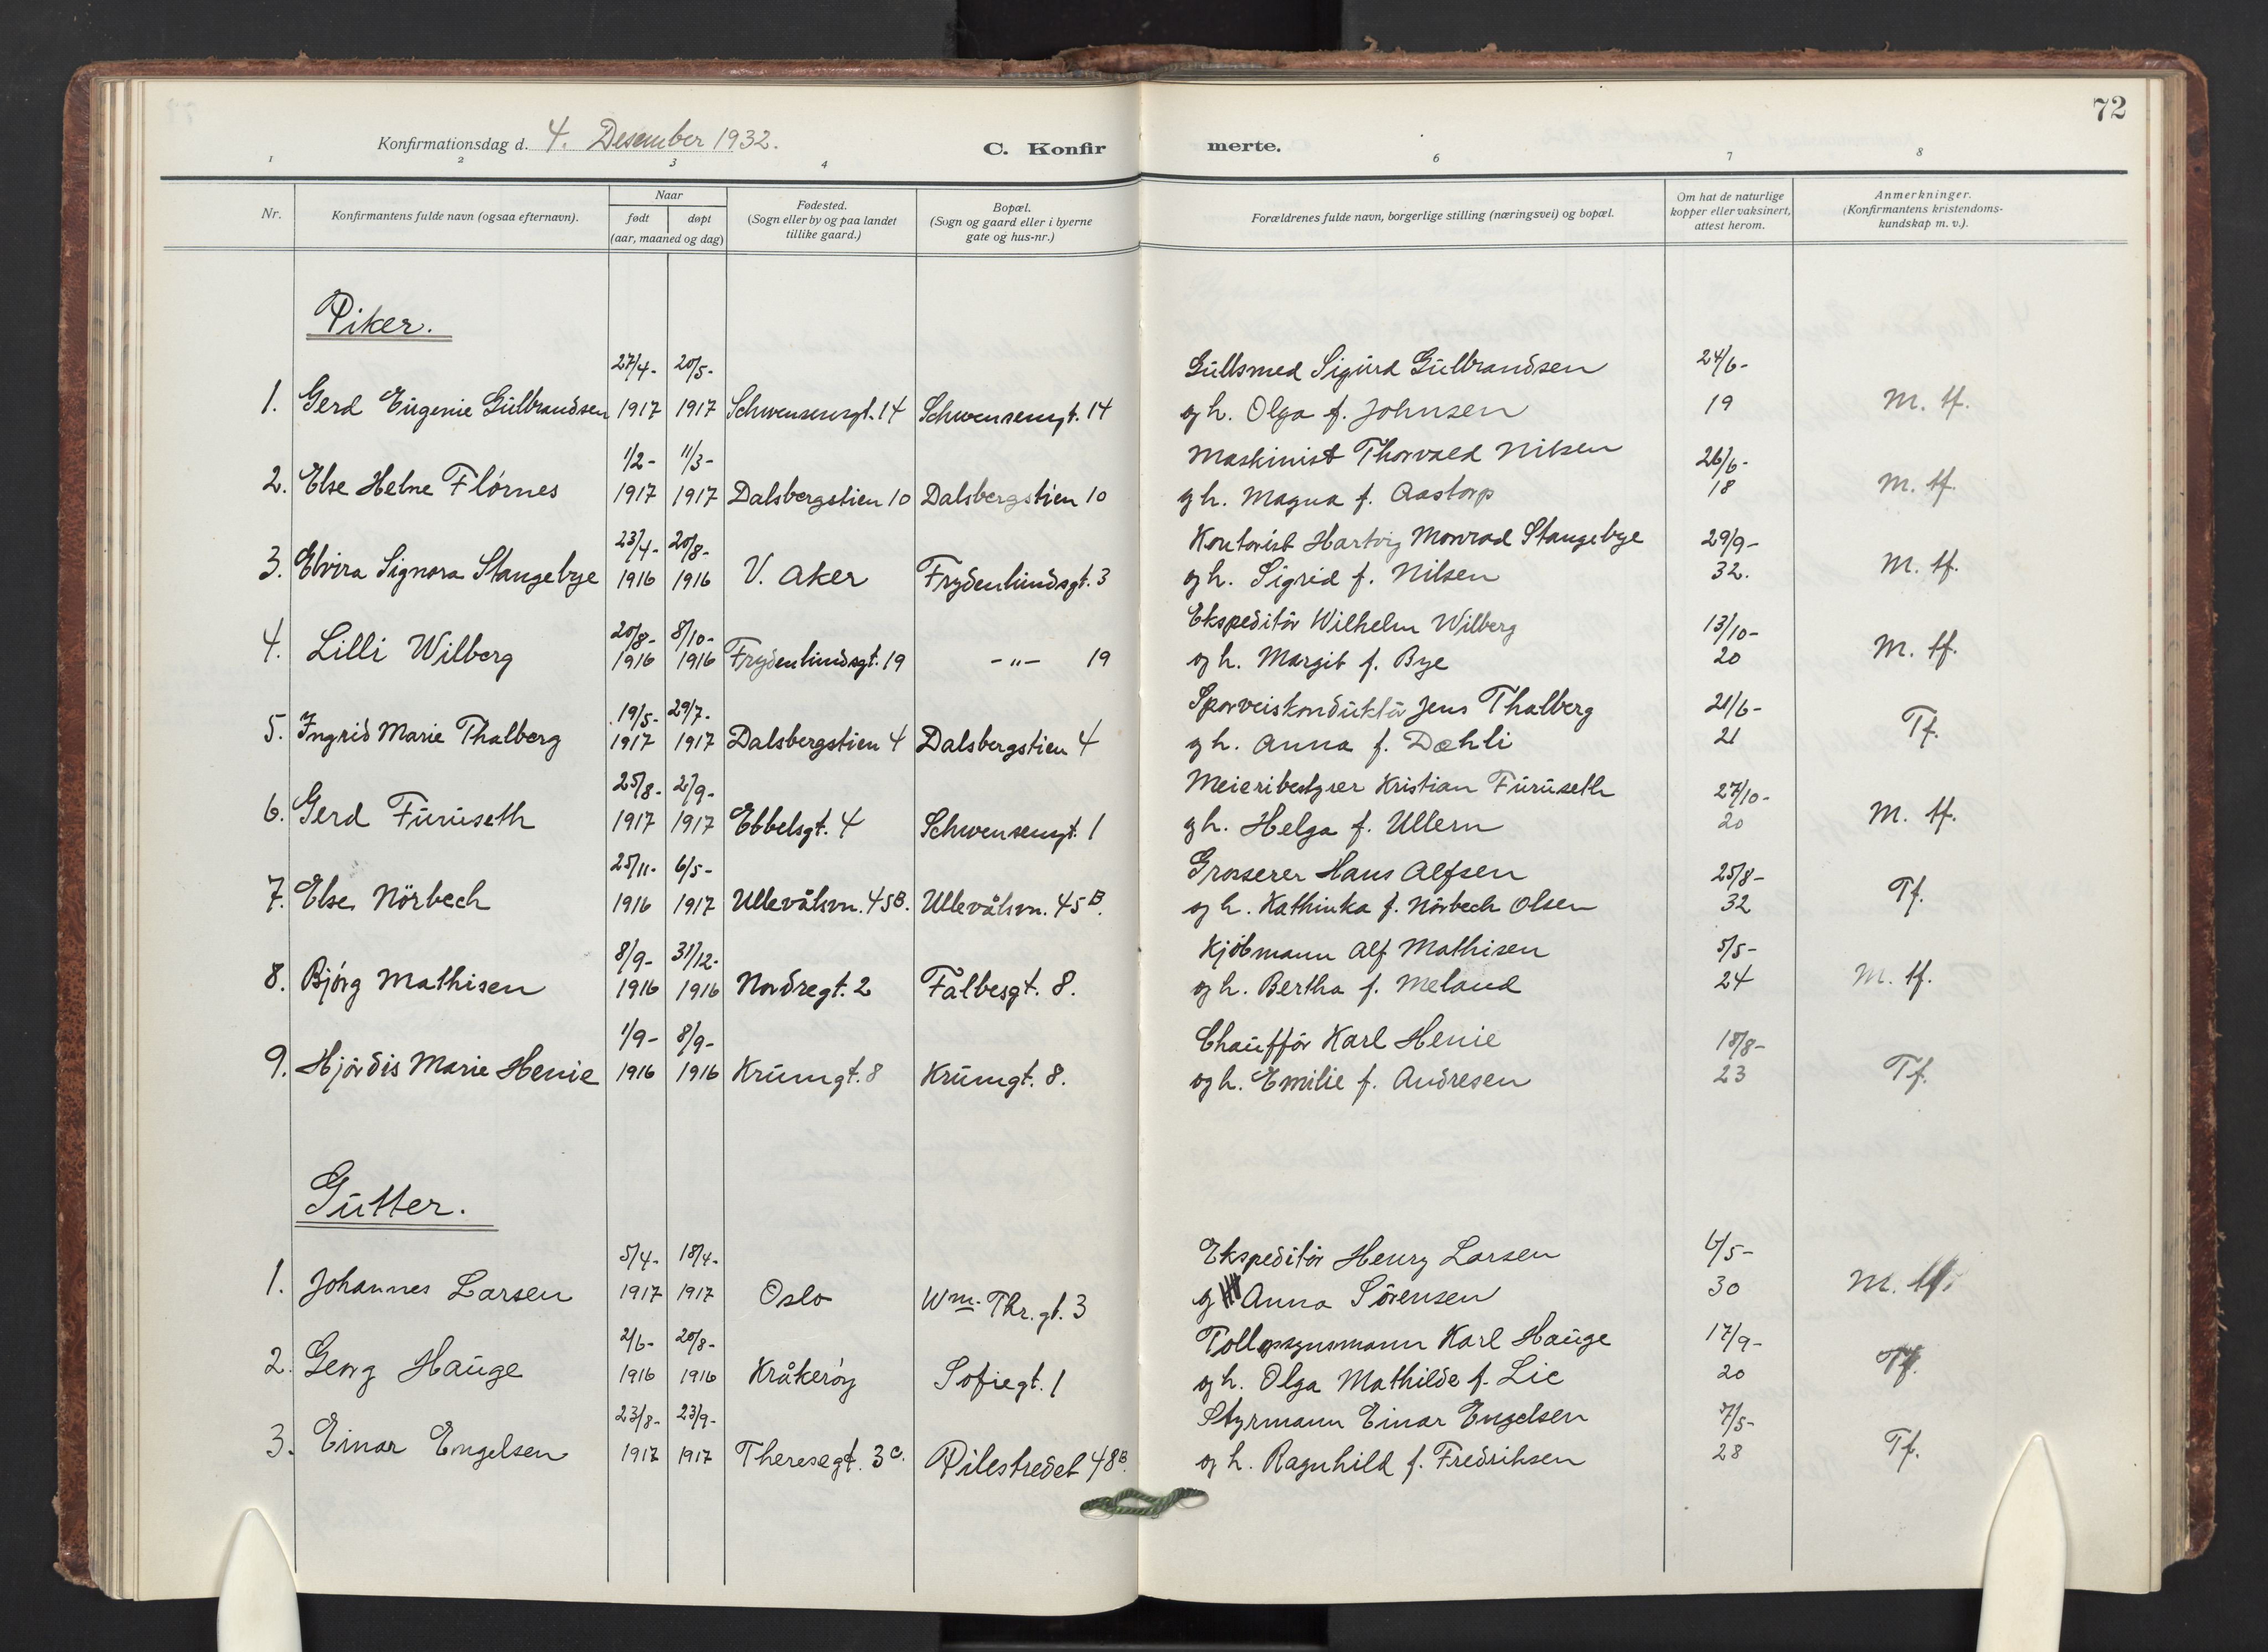 72
Konfirmationsdag d. 4. Desember 1932. C. Konfir merte.
1 2 3 4 6 7 8
Nr. Konfirmantens fulde navn (ogsaa efternavn). Naar født døpt (aar, maaned og dag) Fødested. (Sogn eller by og paa landet tillike gaard.) Bopæl. (Sogn og gaard eller i byerne gate og hus-nr.) Forældrenes fulde navn, borgerlige stilling (næringsvei) og bopæl. Om hat de naturlige kopper eller vaksinert, attest herom. Anmerkninger. (Konfirmantens kristendoms-kundskap m. v.).
Piker.
27/4- 20/5- Gullsmed Sigurd Gulbrandsen 24/6-
1. Gerd Eugenie Gulbrandsen 1917 1917 Schwensensgt. 14 Schwensengt. 14 og h. Olga f. Johnsen 19 M. tf.
1/2- 11/3- Maskinist Thorvald Nilsen 26/6-
2. Else Helne Flórnes 1917 1917 Dalsbergstien 10 Dalsbergstien 10 og h. Magna f. Aastorp 18 M. tf.
23/4- 20/8- Kontorist Hartvig Monrad Stangebye 29/9-
3. Elvira Signora Stangebye 1916 1916 V. Aker Frydenlundsgt. 3 og h. Sigrid f. Nilsen 32. M. tf.
20/8- 8/10- Ekspeditör Wilhelm Wilberg 13/10-
4. Lilli Wilberg 1916 1916 Frydenlundsgt. 19 -"- 19 og h. Margit f. Bye 20 M. tf.
19/5- 29/7- Sporveiskonduktör Jens Thalberg 21/6-
5. Ingrid Marie Thalberg 1917 1917 Dalsbergstien 4 Dalsbergstien 4 og h. Anna f. Dæhli 21 Tf.
25/8- 2/9- Meieribestyrer Kristian Furuseth 27/10-
6. Gerd Furuseth 1917 1917 Ebbelsgt. 4 Schwensengt. 1 og h. Helga f. Ullern 20 M. tf.
25/11- 6/5- Grosserer Hans Alfsen 25/8-
7. Else Nörbech 1916 1917 Ullevålsvn. 45B. Ullevålsvn. 45B. og h. Kathinka f. Nörbech Olsen 32 Tf.
8/9- 31/12- Kjöbmann Alf Mathisen 5/5-
8. Bjórg Mathisen 1916 1916 Nordregt. 2 Falbesgt. 8. og h. Bertha f. Meland 24 M. tf.
1/9- 8/9- Chaufför Karl Henie 18/8-
9. Hjördis Marie Henie 1916 1916 Krumgt. 8 Krumgt. 8. og h. Emilie f. Andresen 23 Tf.
Gutter.
5/4- 18/4- Ekspeditör Henry Larsen 6/5-
1. Johannes Larsen 1917 1917 Oslo Wm. Thr. gt. 3 og Anna Sörensen 30 M. tf.
2/6- 20/8- Tollopsynsmann Karl Hauge 17/9-
2. Georg Hauge 1916 1916 Kråkeröy Sofiegt. 1 og h. Olga Mathilde f. Lie 20 Tf.
23/8- 23/9- Styrmann Einar Engelsen 7/5-
3. Einar Engelsen 1917 1917 Theresegt. 3c. Pilestredet 48B. og h. Ragnhild f. Fredriksen 28 Tf.